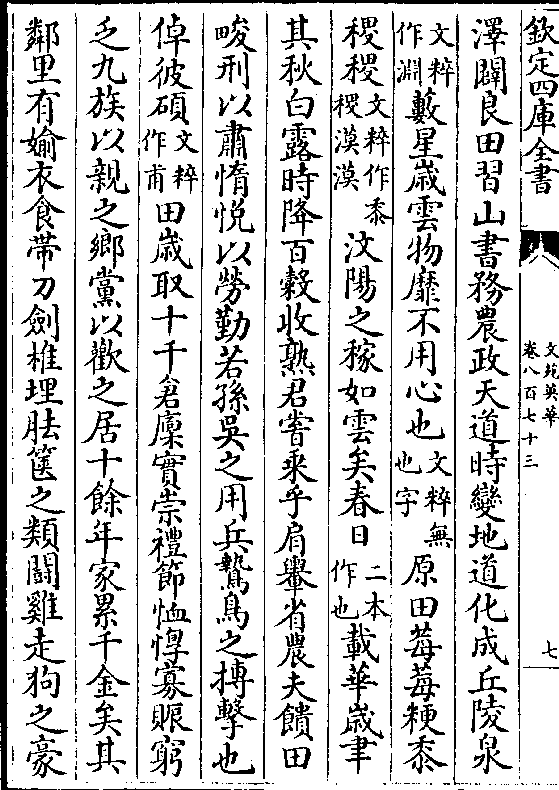 欽定四庫全書
文苑英華
卷八百七十三
七
澤闢良田習山書務農政天道時變地道化成丘陵泉
文粹作淵藪星嵗雲物靡不用心也文粹無也字原田莓莓稉黍
稷稷文粹作黍稷漠漠汶陽之稼如雲矣春日二本作也載華嵗聿
其秋白露時降百穀收熟君嘗乘乎肩轝省農夫饋田
畯刑以肅惰悦以勞勤若孫吳之用兵鷙鳥之搏擊也
倬彼碩文粹作甫田嵗取十千倉廩實崇禮節恤惸寡賑窮
乏九族以親之鄉黨以歡之居十餘年家累千金矣其
鄰里有媮衣食帶刀劍椎埋胠篋之類鬪雞走狗之豪